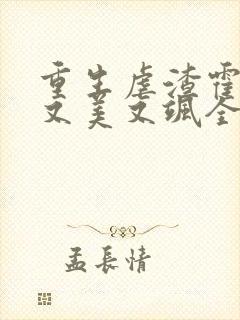 重生虐渣霍
又美又飒全
孟長情